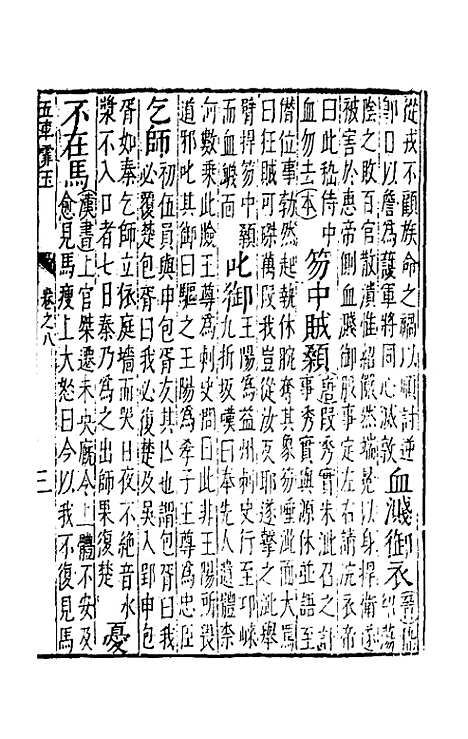 從戎不顧族命之禍以順討逆
即日以詹為護軍將同心滅敦
血濺御衣
陰之敗百官散潰惟紹儼然端冕以身捍衛遂
被害於惠帝側血濺御服事定左右請浣衣帝
曰此嵇侍中
血勿去本
笏中賊顙
唐段秀實朱泚召之計
事秀實與源休並語至
僭位事勃然起執休腕奪其象笏唾泚面大罵
曰狂賊可磔萬段我豈從汝反耶遂擊之泚舉
臂捍笏中顙
而血衊面
叱御
王陽為益州刺史行至邛崍
九折坂嘆曰奉先人遺體奈
何數乘此險王尊為刺史問曰此非王陽所畏
道邪叱其御曰驅之王陽為孝子王尊為忠臣
乞師
初伍員與申包胥友其亡也謂包胥曰我
必覆楚包胥曰我必復楚及吳入郢申包
胥如秦乞師立依庭墻而哭日夜不絕音水
漿不入口者七日秦乃為之出師果復楚
憂
不在馬
漢書上官桀遷未央廐令上體不安及
愈見馬瘦上大怒曰今以我不復見馬
五車霏玉
卷之八
三